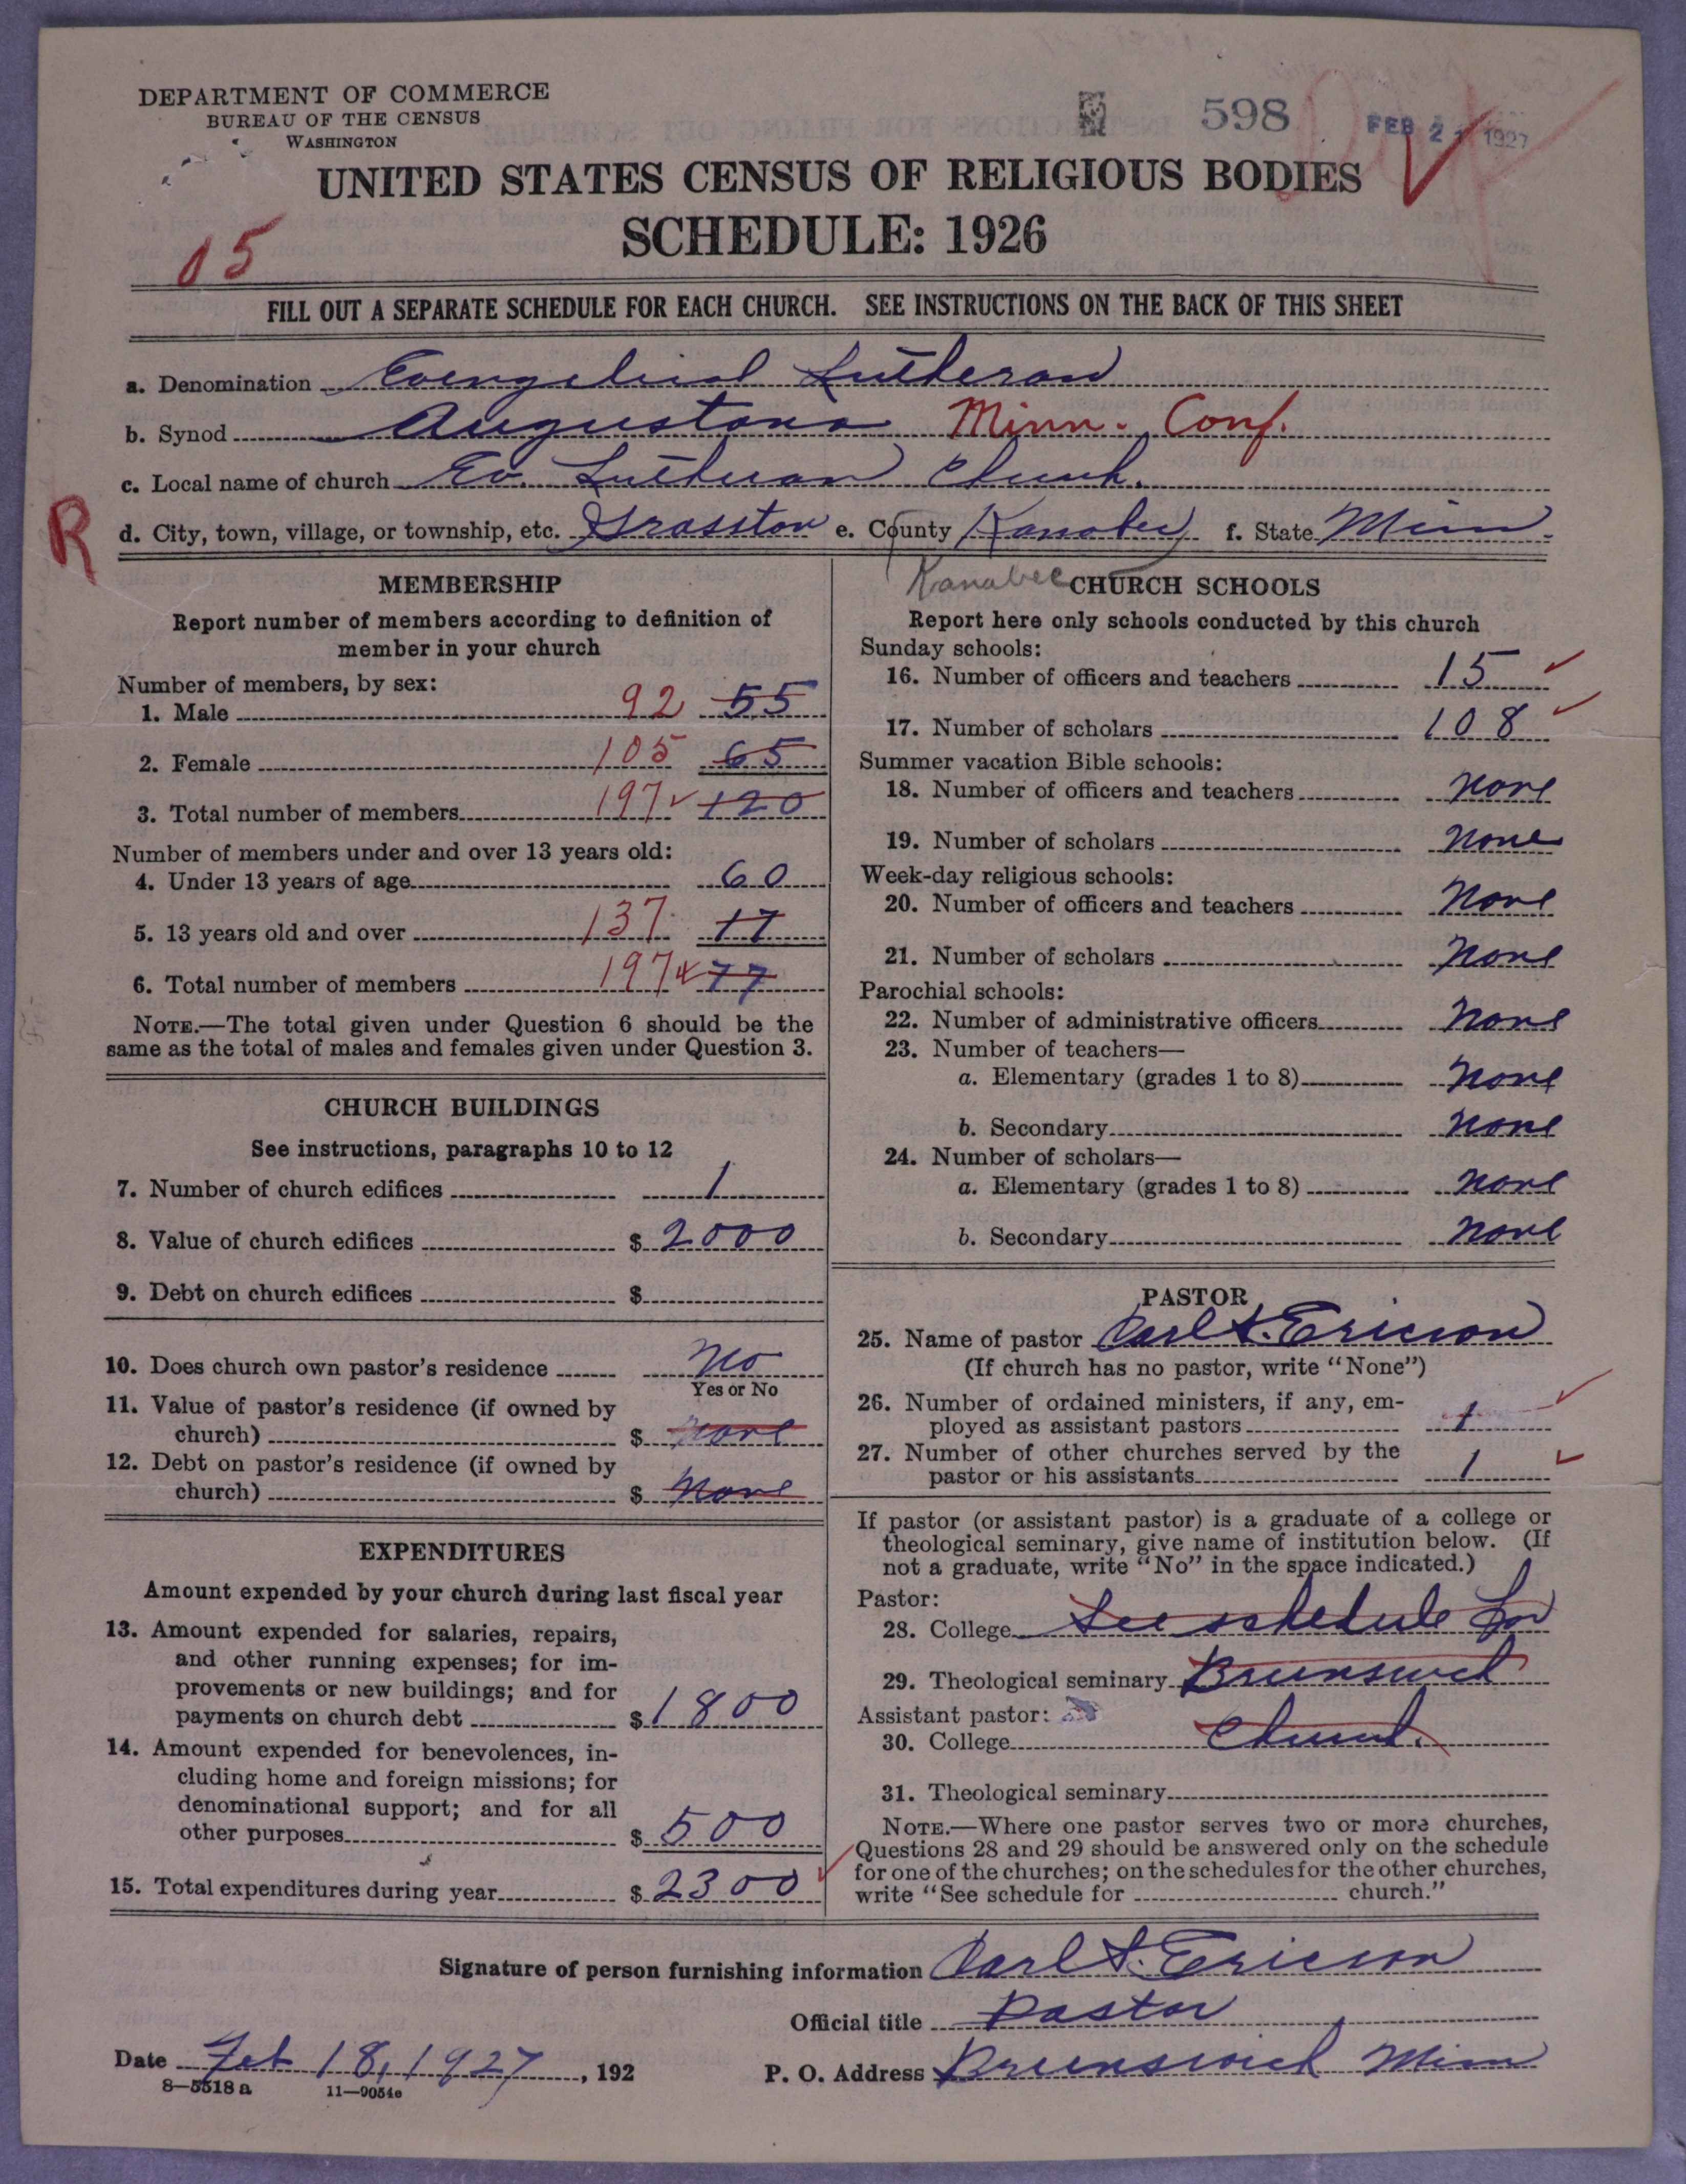 DEPARTMENT OF COMMERCE
BUREAU OF THE CENSUS
WASHINGTON
598
FEB 21 1927
UNITED STATES CENSUS OF RELIGIOUS BODIES
SCHEDULE: 1926
05
FILL OUT A SEPARATE SCHEDULE FOR EACH CHURCH. SEE INSTRUCTIONS ON THE BACK OF THIS SHEET
a. Denomination Evengelical Lutheran
b. Synod Augustana Minn. Conf.
c. Local name of church Ev. Lutheran Church.
R
d. City, town, village, or township, etc. Grasston e. County Kanabec f. State Minn.
Kanabec
MEMBERSHIP
Report number of members according to definition of
member in your church
Number of members, by sex:
1. Male 92 55
2. Female 105 65
3. Total number of members 197 ✓ 120
Number of members under and over 13 years old:
4. Under 13 years of age 60
5. 13 years old and over 137 17
6. Total number of members 197 77
NOTE.—The total given under Question 6 should be the
same as the total of males and females given under Question 3.
CHURCH BUILDINGS
See instructions, paragraphs 10 to 12
7. Number of church edifices 1
8. Value of church edifices $ 2000
9. Debt on church edifices $
10. Does church own pastor's residence No
Yes or No
11. Value of pastor's residence (if owned by
church) $ None
12. Debt on pastor's residence (if owned by
church) $ None
EXPENDITURES
Amount expended by your church during last fiscal year
13. Amount expended for salaries, repairs,
and other running expenses; for im-
provements or new buildings; and for
payments on church debt $ 1800
14. Amount expended for benevolences, in-
cluding home and foreign missions; for
denominational support; and for all
other purposes $ 500
15. Total expenditures during year $ 2300 ✓
CHURCH SCHOOLS
Report here only schools conducted by this church
Sunday schools:
16. Number of officers and teachers 15 ✓
17. Number of scholars 108 ✓
Summer vacation Bible schools:
18. Number of officers and teachers None
19. Number of scholars None
Week-day religious schools:
20. Number of officers and teachers None
21. Number of scholars None
Parochial schools:
22. Number of administrative officers None
23. Number of teachers—
a. Elementary (grades 1 to 8) None
b. Secondary None
24. Number of scholars—
a. Elementary (grades 1 to 8) None
b. Secondary None
PASTOR
25. Name of pastor Carl S. Ericson
(If church has no pastor, write "None")
26. Number of ordained ministers, if any, em-
ployed as assistant pastors 1 ✓
27. Number of other churches served by the
pastor or his assistants 1 ✓
If pastor (or assistant pastor) is a graduate of a college or
theological seminary, give name of institution below. (If
not a graduate, write "No" in the space indicated.)
Pastor:
28. College See schedule for
29. Theological seminary Brunswick
Assistant pastor:
30. College Church.
31. Theological seminary
NOTE.—Where one pastor serves two or more churches,
Questions 28 and 29 should be answered only on the schedule
for one of the churches; on the schedules for the other churches,
write "See schedule for church."
Signature of person furnishing information Carl S. Ericson
Official title Pastor
Date Feb 18, 1927, 192 P. O. Address Brunswick Minn
8—5518 a 11—9054e